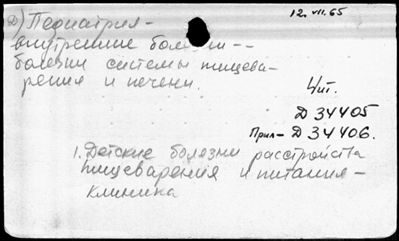 12.VII.65
D) Педиатрия -
внутренние болезни --
болезни системы пищева-
рения и печени.
Чит.
D 34405
Прил- D 34406.
1. Детские болезни расстройства
пищеварения и питания -
клиника